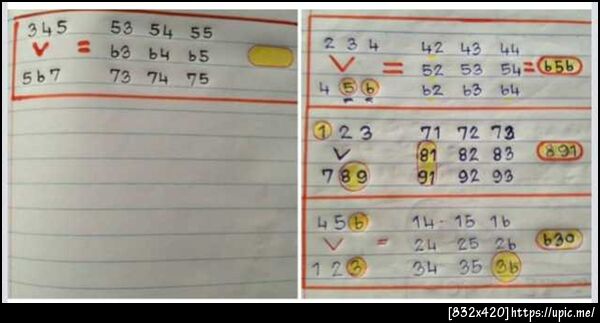 3 4 5 53 54 55
= 63 64 65
5 6 7 73 74 75
2 3 4 42 43 44
= 52 53 54 = 656
4 5 6 62 63 64
1 2 3 71 72 73
81 82 83 891
7 8 9 91 92 93
4 5 6 14 - 15 16
= 24 25 26 630
1 2 3 34 35 36
[832x420]https://upic.me/